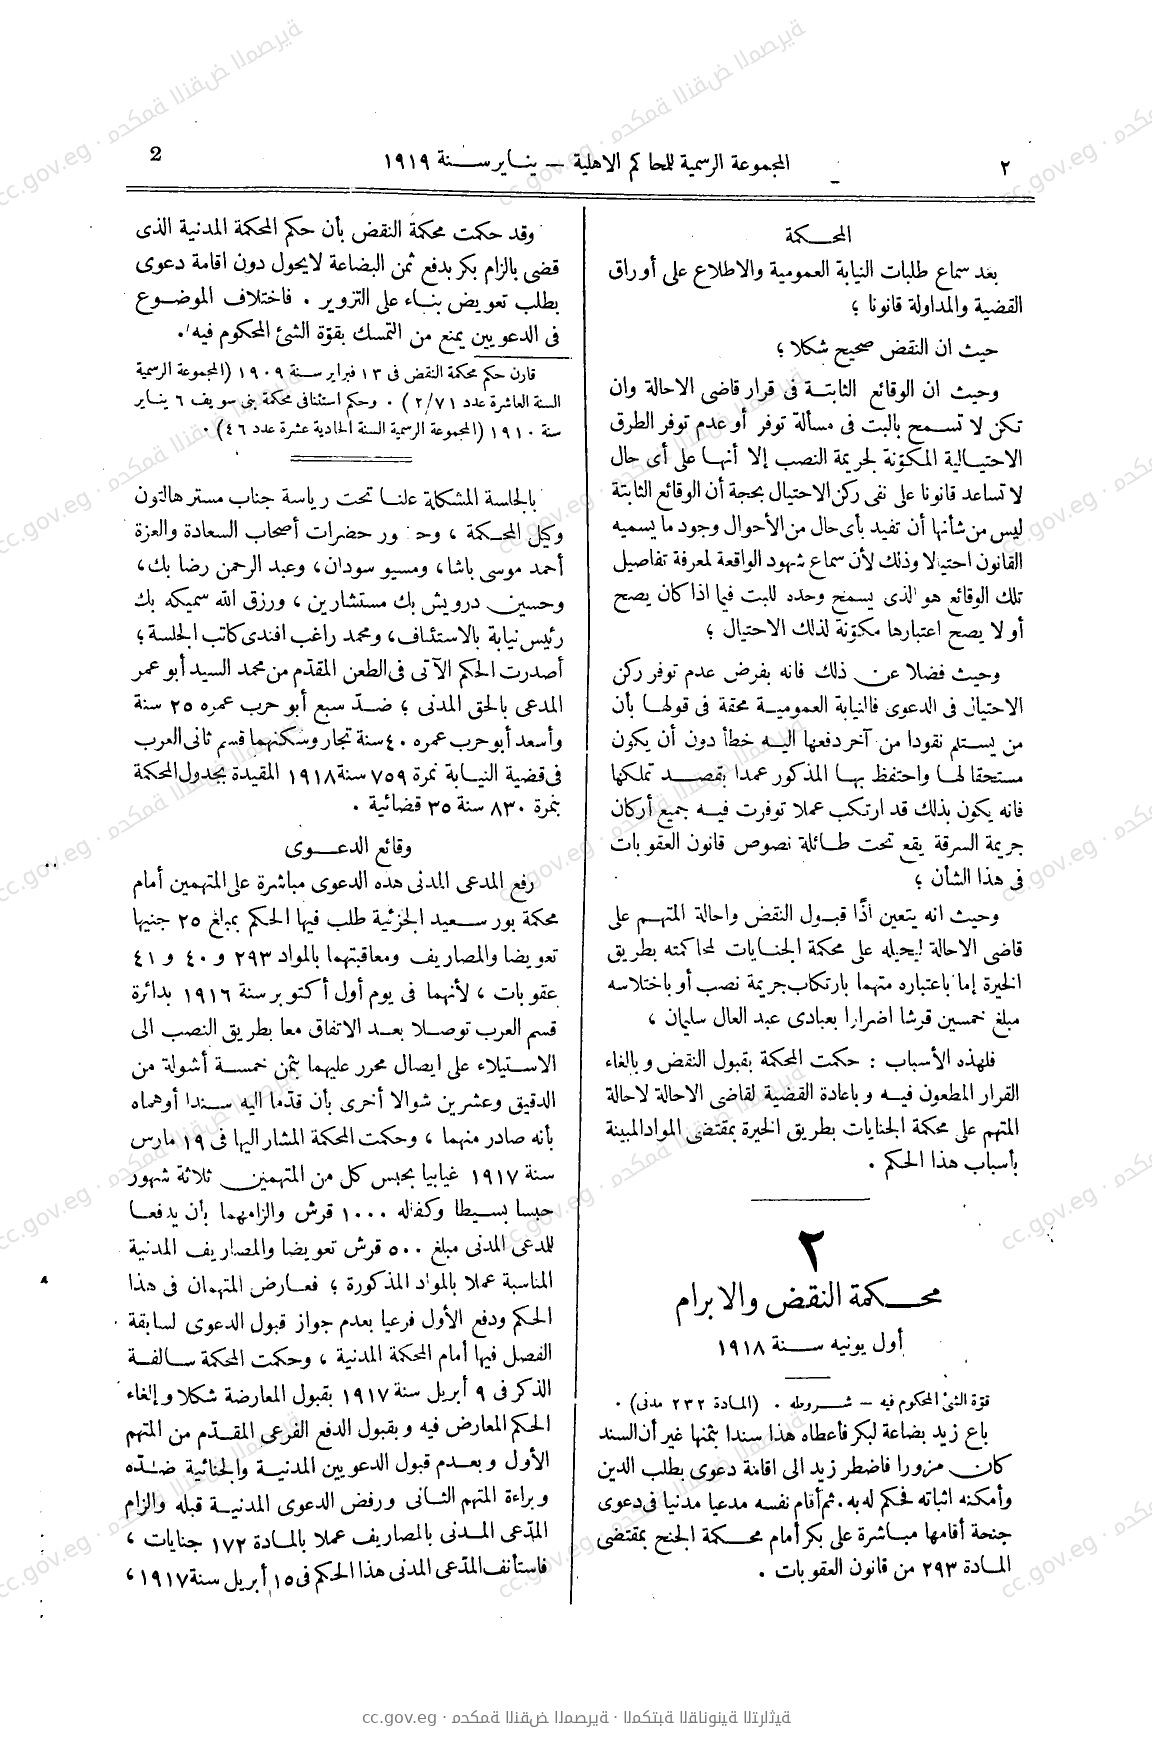 ٢
المجموعة الرسمية للمحاكم الاهلية – يناير سنة ١٩١٩
2
المحكمة
بعد سماع طلبات النيابة العمومية والاطلاع على أوراق
القضية والمداولة قانونا ؛
حيث ان النقض صحيح شكلا ؛
وحيث ان الوقائع الثابتة فى قرار قاضى الاحالة وان
تكن لا تسمح بالبت فى مسألة توفر أو عدم توفر الطرق
الاحتيالية المكوّنة لجريمة النصب إلا أنها على أى حال
لا تساعد قانونا على نفى ركن الاحتيال بحجة أن الوقائع الثابتة
ليس من شأنها أن تفيد بأى حال من الأحوال وجود ما يسميه
القانون احتيالا وذلك لأن سماع شهود الواقعة لمعرفة تفاصيل
تلك الوقائع هو الذى يسمح وحده للبت فيما اذا كان يصح
أو لا يصح اعتبارها مكوّنة لذلك الاحتيال ؛
وحيث فضلا عن ذلك فانه بفرض عدم توفر ركن
الاحتيال فى الدعوى فالنيابة العمومية محقة فى قولها بأن
من يستلم نقودا من آخر دفعها اليه خطأ دون أن يكون
مستحقا لها واحتفظ بها المذكور عمدا بقصد تملكها
فانه يكون بذلك قد ارتكب عملا توفرت فيه جميع أركان
جريمة السرقة يقع تحت طائلة نصوص قانون العقوبات
فى هذا الشأن ؛
وحيث انه يتعين اذًا قبول النقض واحالة المتهم على
قاضى الاحالة ليحيله على محكمة الجنايات لمحاكمته بطريق
الخيرة إما باعتباره متهما بارتكاب جريمة نصب أو باختلاسه
مبلغ خمسين قرشا اضرارا بعبادى عبد العال سليمان ،
فلهذه الأسباب : حكمت المحكمة بقبول النقض وبالغاء
القرار المطعون فيه وباعادة القضية لقاضى الاحالة لاحالة
المتهم على محكمة الجنايات بطريق الخيرة بمقتضى المواد المبينة
بأسباب هذا الحكم .
٢
محكمة النقض والابرام
أول يونيه سنة ١٩١٨
قوّة الشئ المحكوم فيه – شروطه . (المادة ٢٣٢ مدنى) .
باع زيد بضاعة لبكر فأعطاه هذا سندا بثمنها غير أن السند
كان مزورا فاضطر زيد الى اقامة دعوى بطلب الدين
وأمكنه اثباته فحكم له به . ثم أقام نفسه مدعيا مدنيا فى دعوى
جنحة أقامها مباشرة على بكر أمام محكمة الجنح بمقتضى
المادة ٢٩٣ من قانون العقوبات .
وقد حكمت محكمة النقض بأن حكم المحكمة المدنية الذى
قضى بالزام بكر بدفع ثمن البضاعة لايحول دون اقامة دعوى
بطلب تعويض بناء على التزوير . فاختلاف الموضوع
فى الدعويين يمنع من التمسك بقوّة الشئ المحكوم فيه .
قارن حكم محكمة النقض فى ١٣ فبراير سنة ١٩٠٩ (المجموعة الرسمية
السنة العاشرة عدد ٢/٧١) . وحكم استئنافى محكمة بنى سويف ٦ يناير
سنة ١٩١٠ (المجموعة الرسمية السنة الحادية عشرة عدد ٤٦) .
بالجلسة المشكلة علنا تحت رياسة جناب مستر هالتون
وكيل المحكمة ، وحضور حضرات أصحاب السعادة والعزة
أحمد موسى باشا ، ومسيو سودان ، وعبد الرحمن رضا بك ،
وحسين درويش بك مستشارين ، ورزق الله سميكه بك
رئيس نيابة بالاستئناف ، ومحمد راغب افندى كاتب الجلسة ؛
أصدرت الحكم الآتى فى الطعن المقدّم من محمد السيد أبو عمر
المدعى بالحق المدنى ؛ ضدّ سبع أبو حرب عمره ٢٥ سنة
وأسعد أبو حرب عمره ٤٠ سنة تجار وسكنهما قسم ثانى العرب
فى قضية النيابة نمرة ٧٥٩ سنة ١٩١٨ المقيدة بجدول المحكمة
بنمرة ٨٣٠ سنة ٣٥ قضائية .
وقائع الدعوى
رفع المدعى المدنى هذه الدعوى مباشرة على المتهمين أمام
محكمة بور سعيد الجزئية طلب فيها الحكم بمبلغ ٢٥ جنيها
تعويضا والمصاريف ومعاقبتهما بالمواد ٢٩٣ و ٤٠ و ٤١
عقوبات ، لأنهما فى يوم أول أكتوبر سنة ١٩١٦ بدائرة
قسم العرب توصلا بعد الاتفاق معا بطريق النصب الى
الاستيلاء على ايصال محرر عليهما بثمن خمسة أشولة من
الدقيق وعشرين شوالا أخرى بأن قدّما اليه سندا أوهماه
بأنه صادر منهما ، وحكمت المحكمة المشار اليها فى ١٩ مارس
سنة ١٩١٧ غيابيا بحبس كل من المتهمين ثلاثة شهور
حبسا بسيطا وكفاله ١٠٠٠ قرش والزامهما بأن يدفعا
للمدعى المدنى مبلغ ٥٠٠ قرش تعويضا والمصاريف المدنية
المناسبة عملا بالمواد المذكورة ؛ فعارض المتهمان فى هذا
الحكم ودفع الأول فرعيا بعدم جواز قبول الدعوى لسابقة
الفصل فيها أمام المحكمة المدنية ، وحكمت المحكمة سالفة
الذكر فى ٩ أبريل سنة ١٩١٧ بقبول المعارضة شكلا وإلغاء
الحكم المعارض فيه وبقبول الدفع الفرعى المقدّم من المتهم
الأول وبعدم قبول الدعويين المدنية والجنائية ضدّه
وبراءة المتهم الثانى ورفض الدعوى المدنية قبله والزام
المدّعى المدنى بالمصاريف عملا بالمادة ١٧٢ جنايات ،
فاستأنف المدّعى المدنى هذا الحكم فى ١٥ أبريل سنة ١٩١٧ ،
cc.gov.eg · محكمة النقض المصرية · المكتبة القانونية التراثية